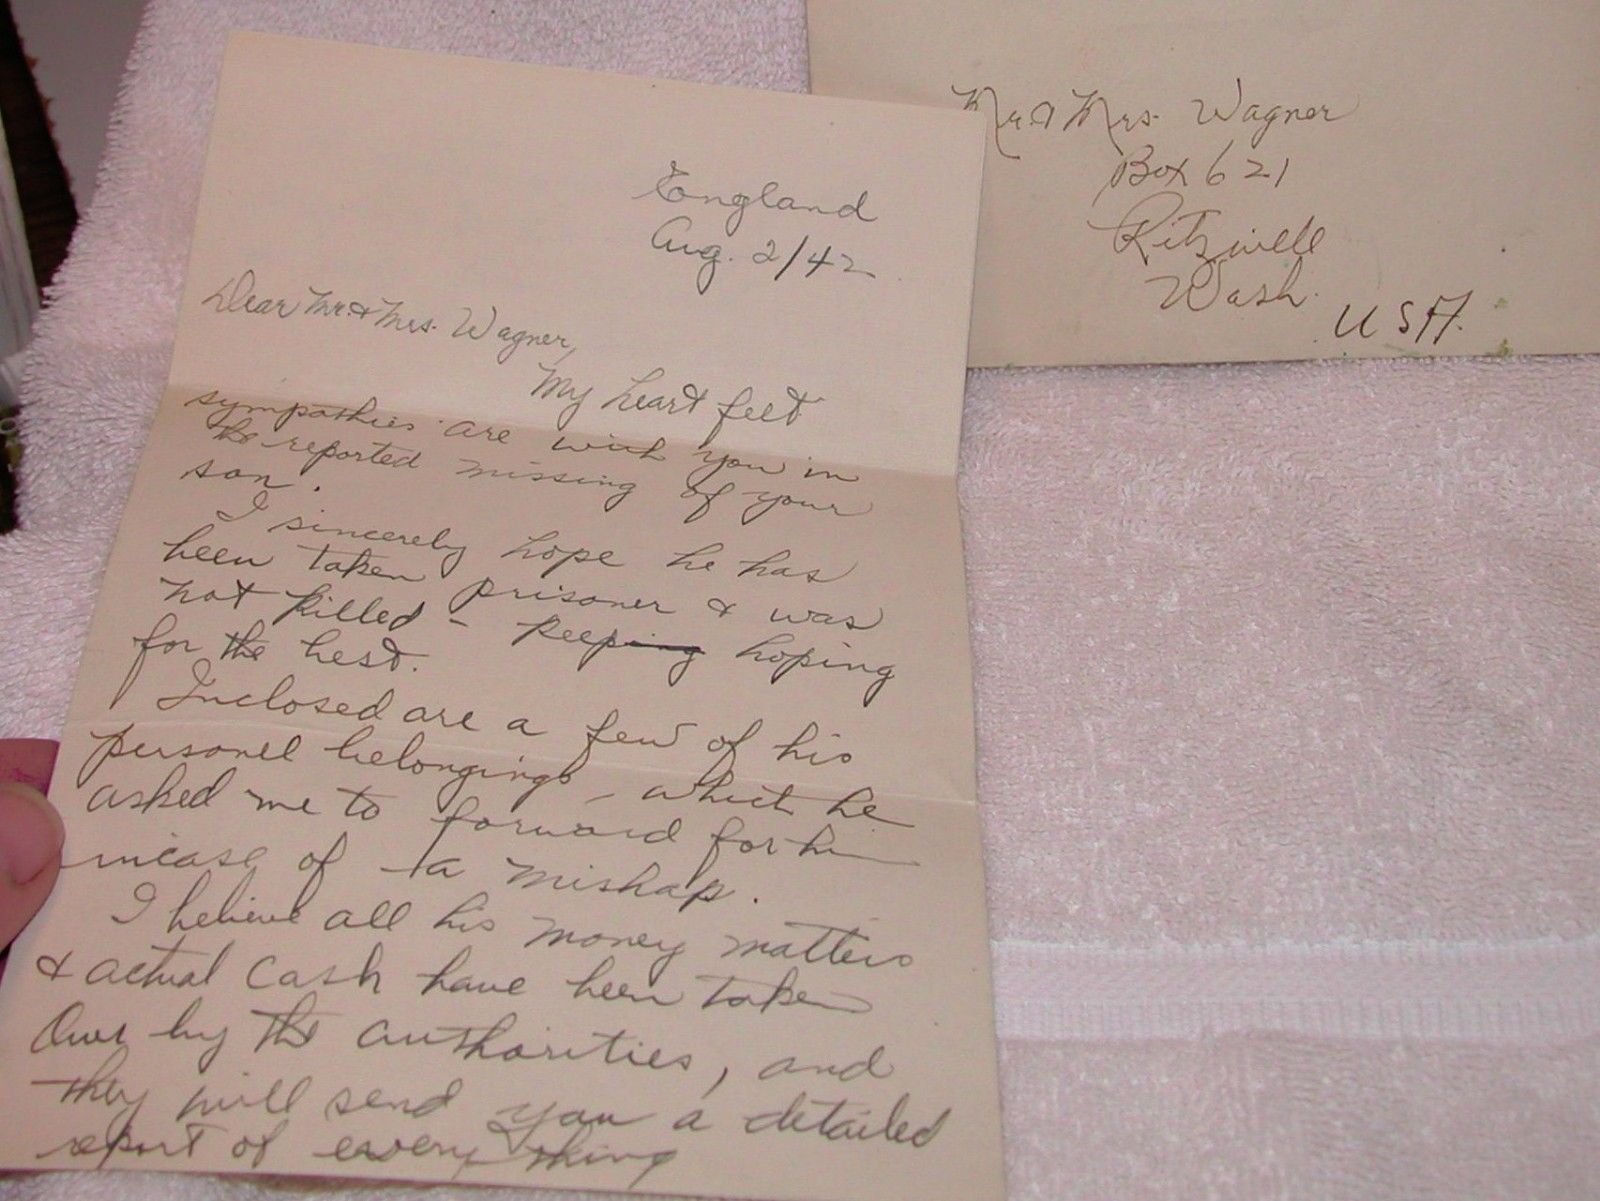 England
Aug. 2/42
Dear Mr. & Mrs. Wagner,
My heart felt
sympathies are with you in
the reported missing of your
son.
I sincerely hope he has
been taken prisoner & was
not killed - keeping hoping
for the best.
Inclosed are a few of his
personel belongings - which he
asked me to forward for him
incase of a mishap.
I believe all his money matters
& actual cash have been taken
over by the authorities, and
they will send you a detailed
report of everything
Mr. & Mrs. Wagner
Box 621
Ritzwell
Wash.
USA.